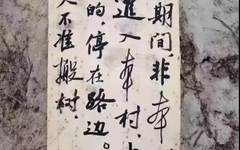 期间,非本
进入本村,
的,停在路边。
人不准搬树,